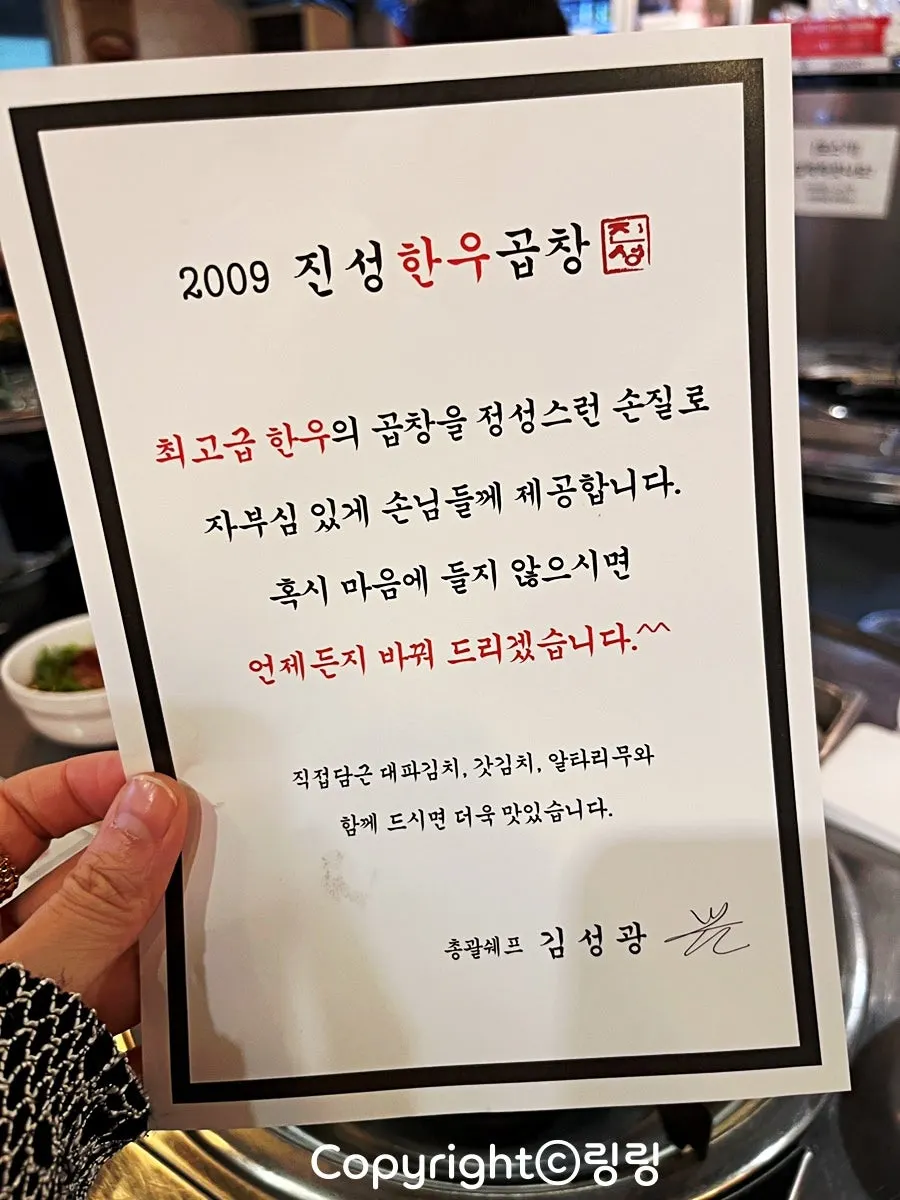 2009 진성한우곱창 진성
최고급 한우의 곱창을 정성스런 손질로
자부심 있게 손님들께 제공합니다.
혹시 마음에 들지 않으시면
언제든지 바꿔 드리겠습니다.^^
직접담근 대파김치, 갓김치, 알타리무와
함께 드시면 더욱 맛있습니다.
총괄쉐프 김성광
Copyrightⓒ링링